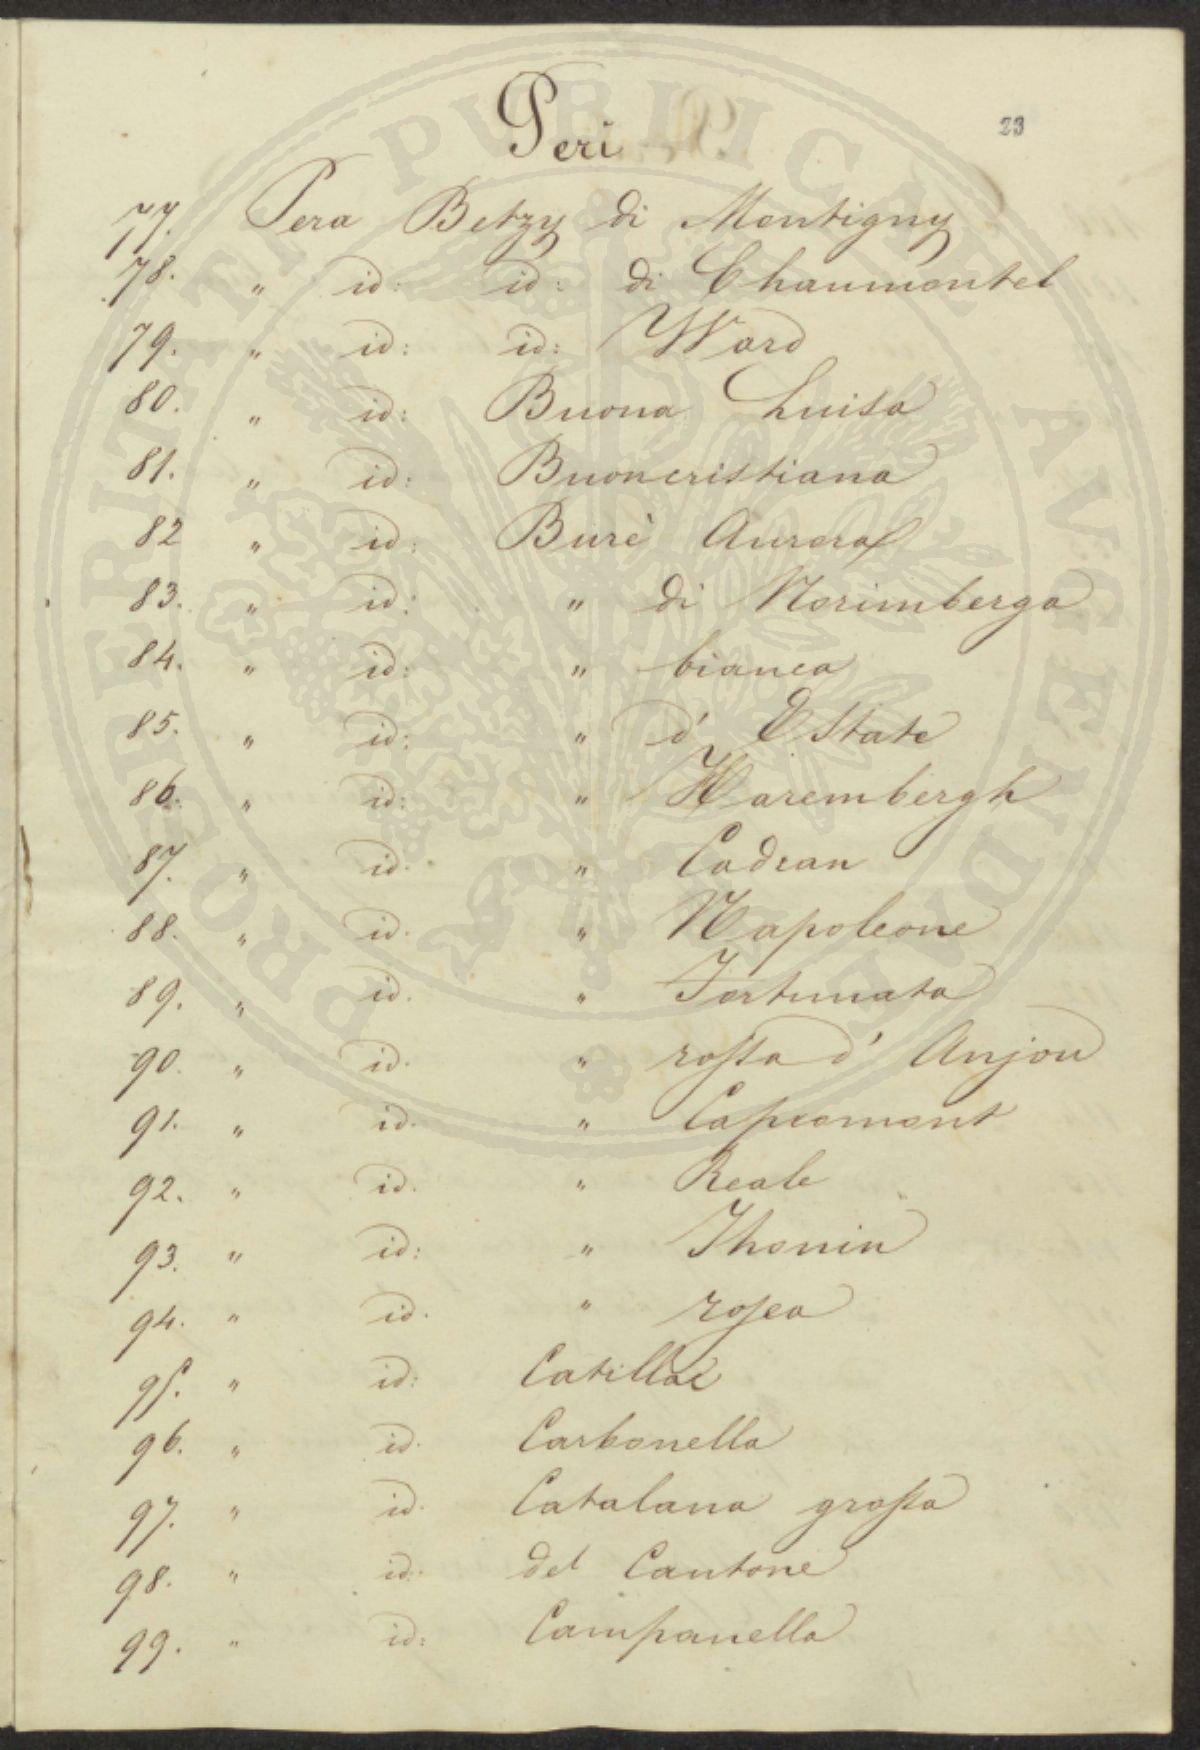 Peri
23
77. Pera Betzy di Montigny
78. " id: id: di Chaumontel
79. " id: id: Ward
80. " id: Buona Luisa
81. " id: Buoncristiana
82 " id: Burè Aurora
83. " id: " di Norimberga
84. " id: " bianca
85. " id: " d' EState
86. " id: " Harembergh
87. " id. " Cadran
88. " id. " Napoleone
89. " id. " Fortunata
90. " id. " rossa d' Anjou
91. " id. " Capiomont
92. " id. " Reale
93. " id: " Thonin
94. " id. " rosea
95. " id: Catillac
96. " id. Carbonella
97. " id. Catalana grossa
98. " id: del Cantone
99. " id: Campanella
PROSPERITATI PVBLICAE AVGENDAE